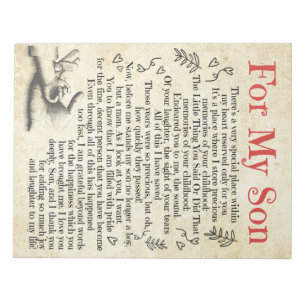 For My Son
There's a very special place within
my heart reserved for only you
It's a place where I store precious
memories of your childhood;
The Little Thing You Said Or Did That
memories of your childhood;
Endeared you to me, the sound
Of your laughter, the sight of your tears
All of this I see so clearly.
Those years were so precious, but oh,
how quickly they passed!
Now, before me stands my son-no longer a boy,
but a man. As I look at you, I want
You to know that I am filled with pride
for the fine, decent person that you have become
Even through all of this has happened
too fast, I am grateful beyond words
for the happiness which you
have brought me. I love you
deeply, Son, and I thank you
for adding so much joy
and laughter to my life!